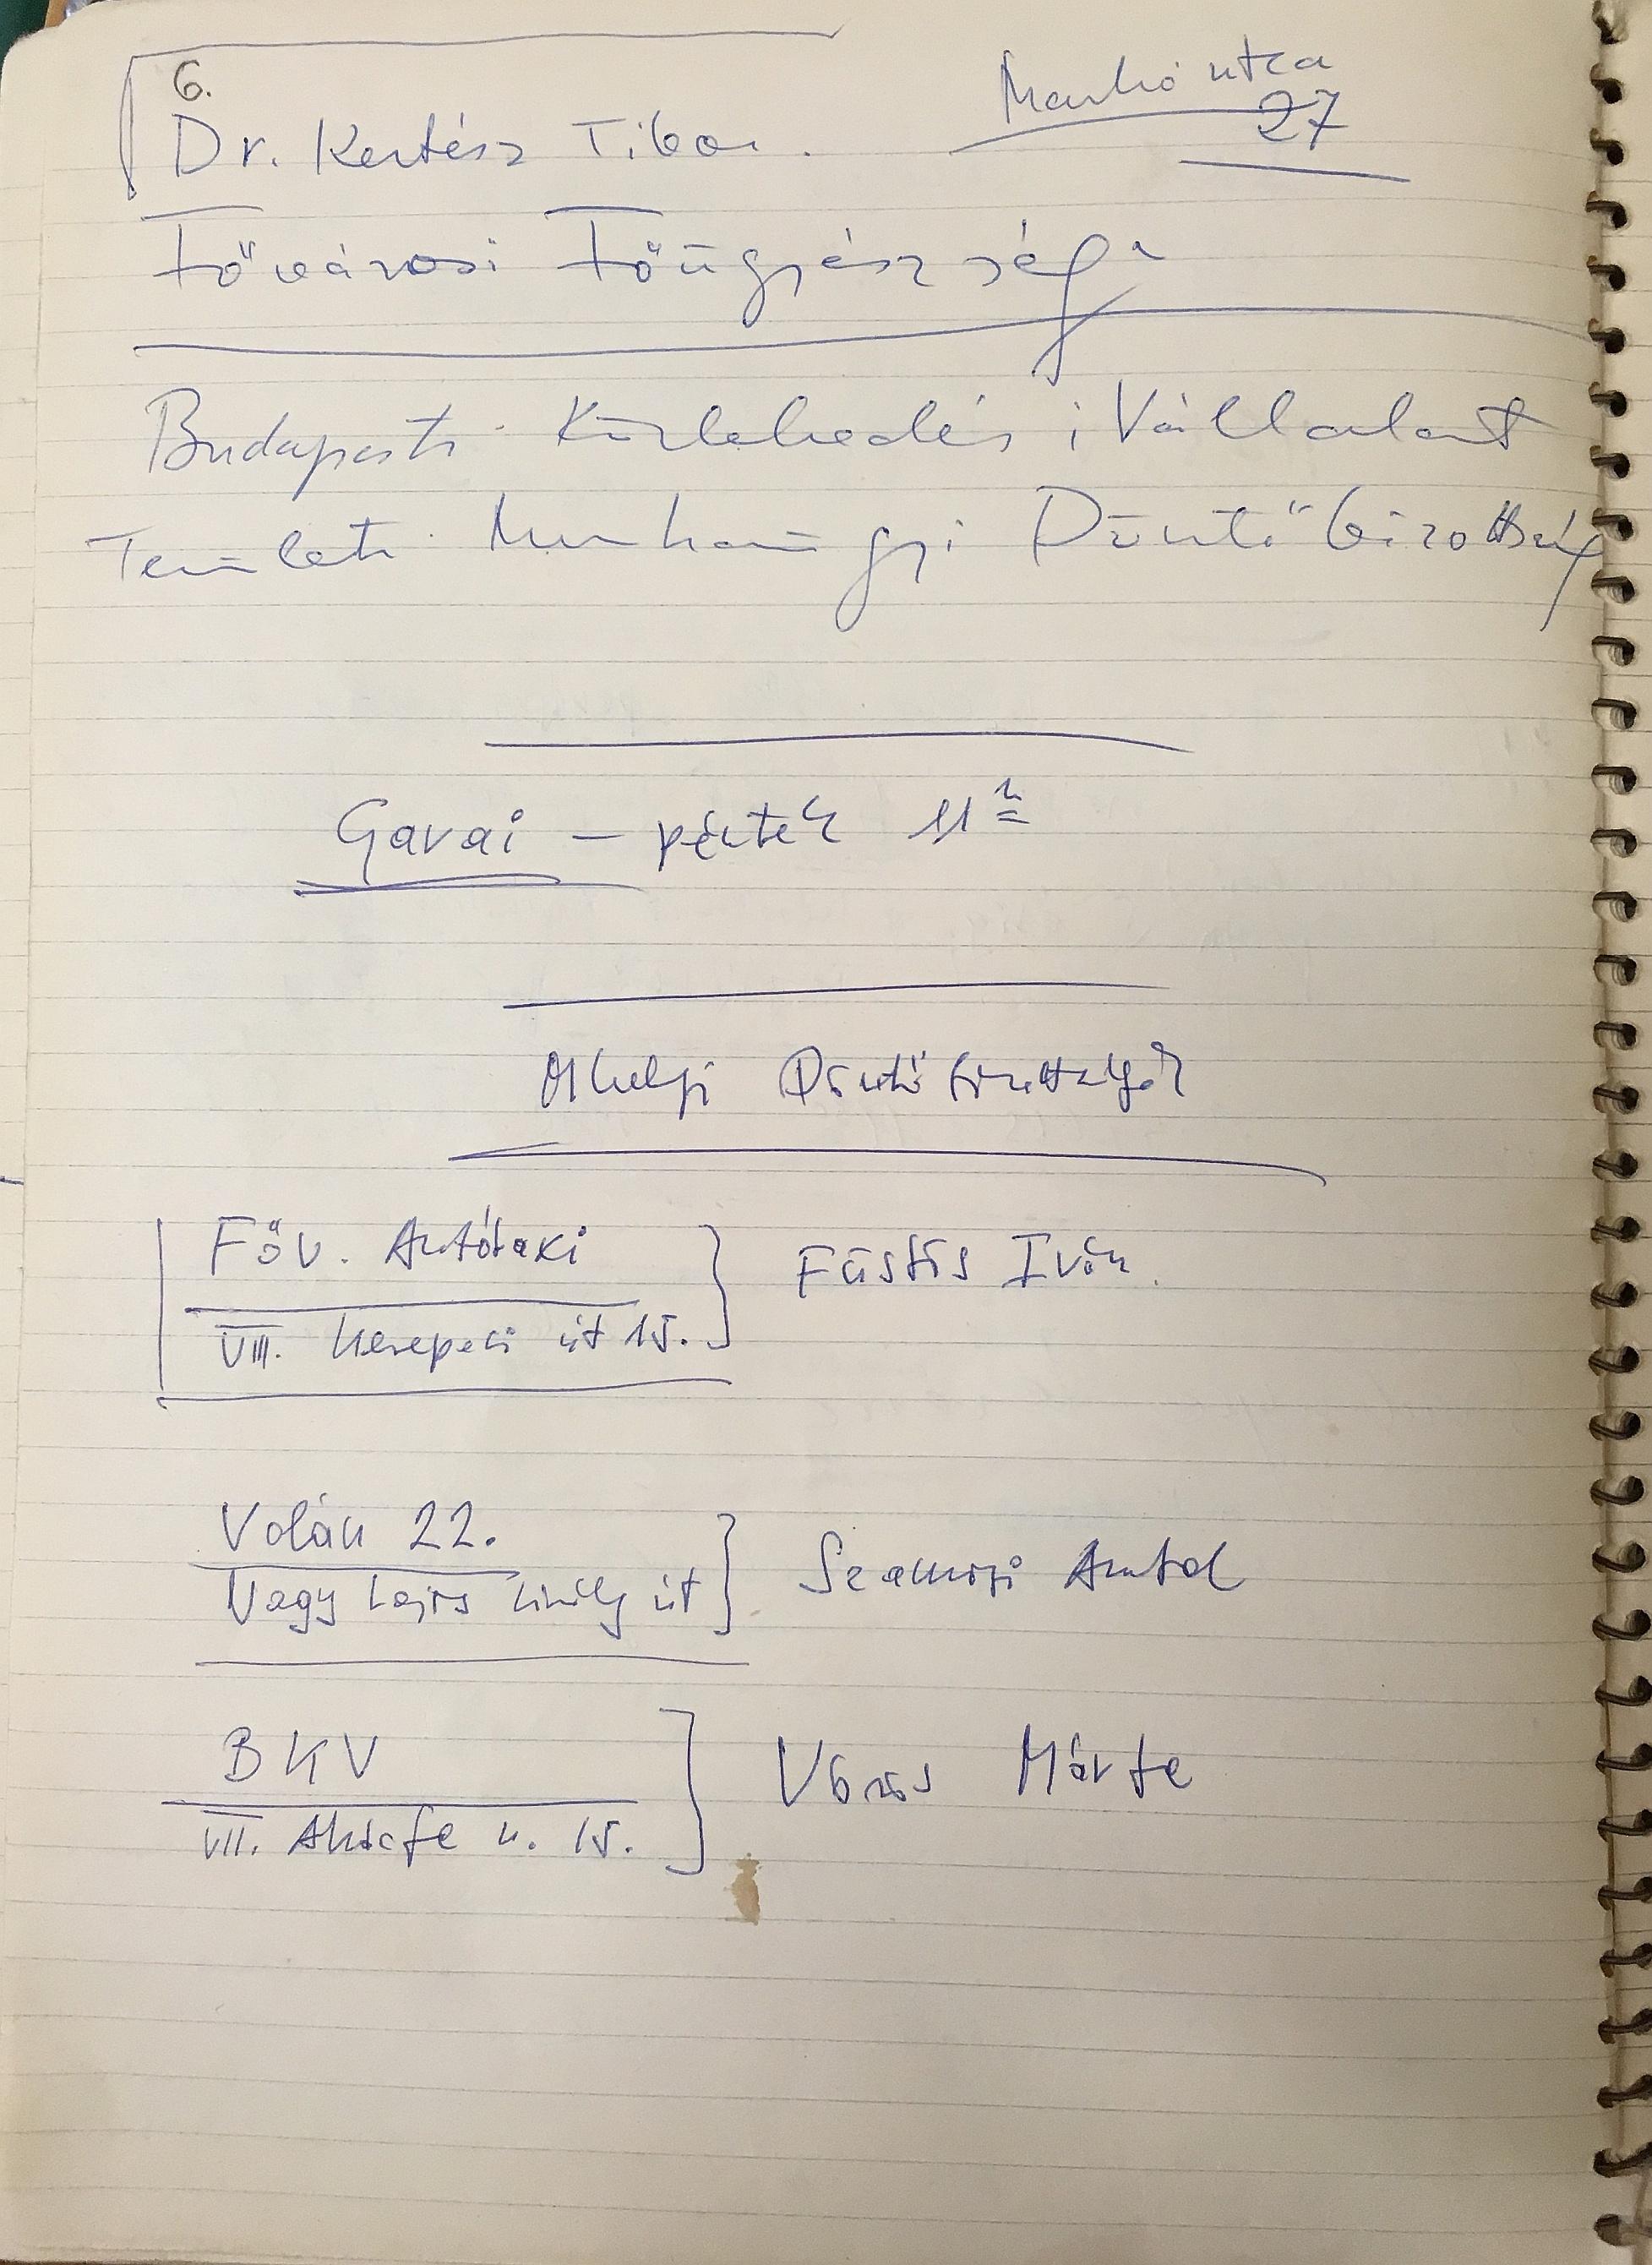 6.
Markó utca
27
Dr. Kertész Tibor.
Fővárosi Főügyészség
Budapesti Közlekedési Vállalat
Területi Munkaügyi Döntőbizottság
Gavai – péntek 11 h
Mhelyi Döntőbizottságok
Föv. Autótaxi
VIII. Kerepesi út 15.
Füstös Iván.
Volán 22.
Nagy Lajos király út
Szamosi Antal
BKV
VII. Akácfa u. 15.
Vörös Márta